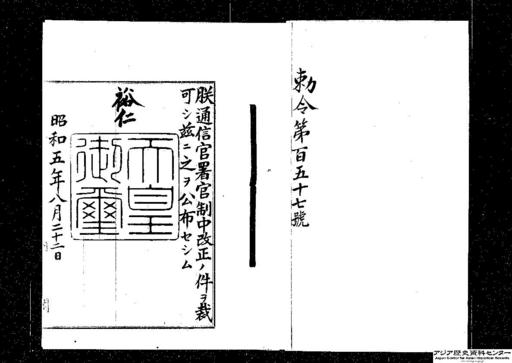 勅令第百五十七號
朕通信官署官制中改正ノ件ヲ裁
可シ茲ニ之ヲ公布セシム
裕仁
天皇
御璽
昭和五年八月二十二日
アジア歴史資料センター
Japan Center for Asian Historical Records